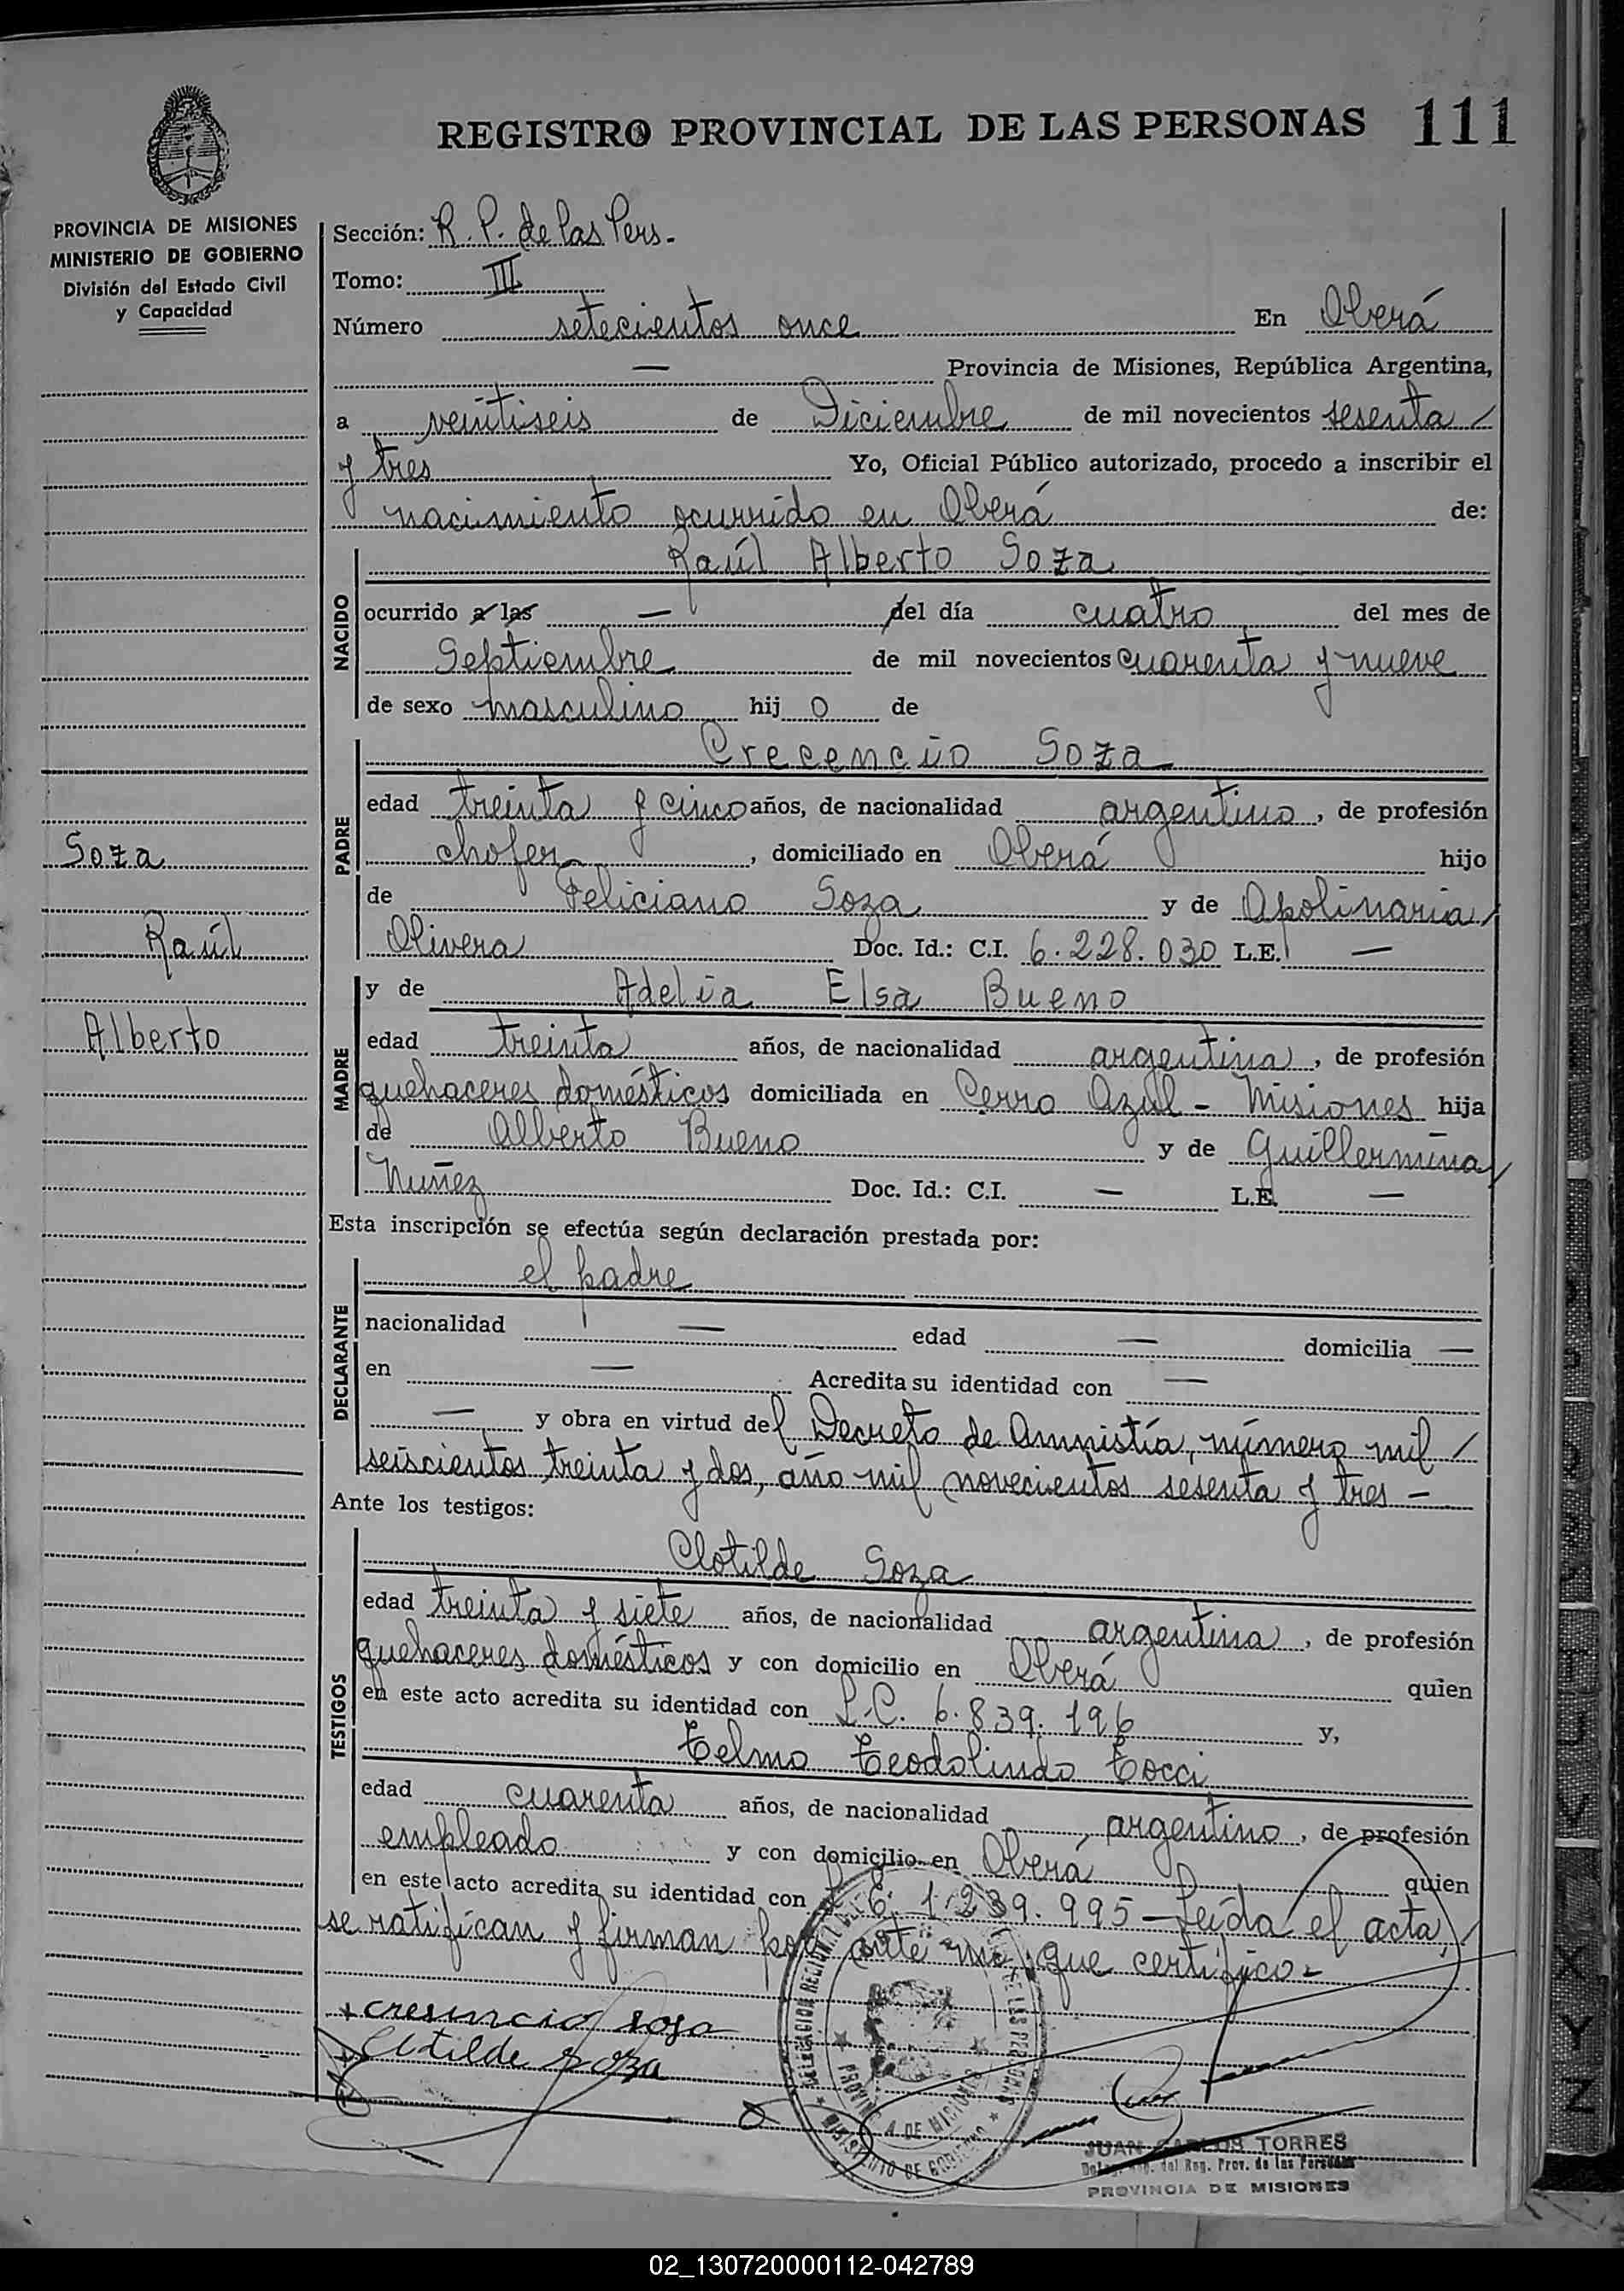 REGISTRO PROVINCIAL DE LAS PERSONAS 111
PROVINCIA DE MISIONES
MINISTERIO DE GOBIERNO
División del Estado Civil
y Capacidad
Soza
Raúl
Alberto
Sección: R. P. de las Pers.
Tomo: III
Número setecientos once En Oberá
— Provincia de Misiones, República Argentina,
a veintiseis de Diciembre de mil novecientos sesenta /
y tres Yo, Oficial Público autorizado, procedo a inscribir el
nacimiento ocurrido en Oberá de:
NACIDO
Raúl Alberto Soza
ocurrido a las — del día cuatro del mes de
Septiembre de mil novecientos cuarenta y nueve
de sexo masculino hij o de
PADRE
Crecencio Soza
edad treinta y cinco años, de nacionalidad argentino, de profesión
chofer, domiciliado en Oberá hijo
de Feliciano Soza y de Apolinaria /
Olivera Doc. Id.: C.I. 6.228.030 L.E. —
MADRE
y de Adelia Elsa Bueno
edad treinta años, de nacionalidad argentina, de profesión
quehaceres domésticos domiciliada en Cerro Azul - Misiones hija
de Alberto Bueno y de Guillermina /
Nuñez Doc. Id.: C.I. — L.E. —
Esta inscripción se efectúa según declaración prestada por:
DECLARANTE
el padre
nacionalidad — edad — domicilia —
en — Acredita su identidad con —
— y obra en virtud del Decreto de Amnistía, número mil /
seiscientos treinta y dos, año mil novecientos sesenta y tres —
Ante los testigos:
TESTIGOS
Clotilde Soza
edad treinta y siete años, de nacionalidad argentina, de profesión
quehaceres domésticos y con domicilio en Oberá quien
en este acto acredita su identidad con L.C. 6.839.196 y,
Telmo Teodolindo Tocci
edad cuarenta años, de nacionalidad argentino, de profesión
empleado y con domicilio en Oberá quien
en este acto acredita su identidad con 1.239.995 — Leída el acta, /
se ratifican y firman por ante mí, que certifico -
cresencio sosa
Clotilde soza
PROVINCIA DE MISIONES
MINISTERIO DE GOBIERNO
JUAN CARLOS TORRES
Deleg. Reg. del Reg. Prov. de las Personas
PROVINCIA DE MISIONES
X Y Z
02_130720000112-042789